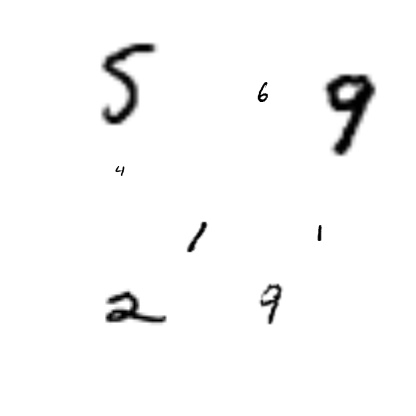 5 6 9
4
1 1
2 9